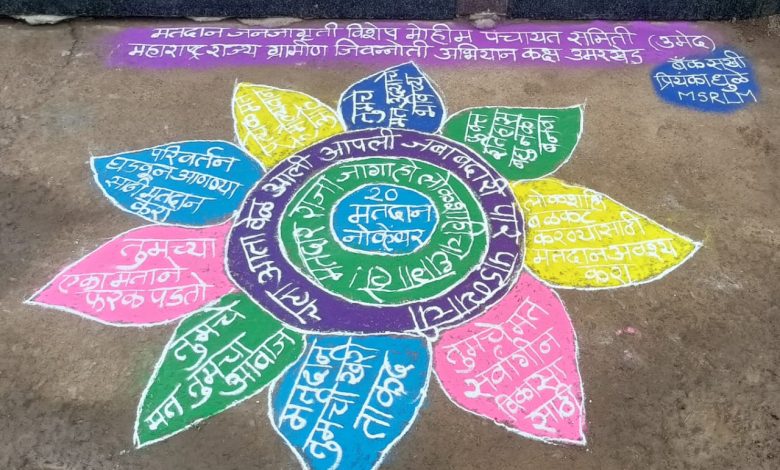 मतदान जनजागृती विशेष मोहीम पंचायत समिती (उमेद)
महाराष्ट्र राज्य ग्रामीण जिवन्नोती अभियान कक्ष उमरखेड
बँक सखी
प्रियंका धुळे
MSRLM
चला आता वेळ आली आपली जबाबदारी पार पाडण्याची
मतदार राजा जागा हो लोकशाहीचा धागा हो!
20
मतदान
नोव्हेंबर
लोकशाही
बळकट
करण्यासाठी
मतदान अवश्य
करा
तुमचे मत
सर्वांगीण
विकासा
साठी
मतदान
तुमची खरी
ताकद
तुमचे
मत तुमचा
आवाज
तुमच्या
एका मताने
फरक पडतो
परिवर्तन
घडवून आणण्या
साठी मतदान
करा